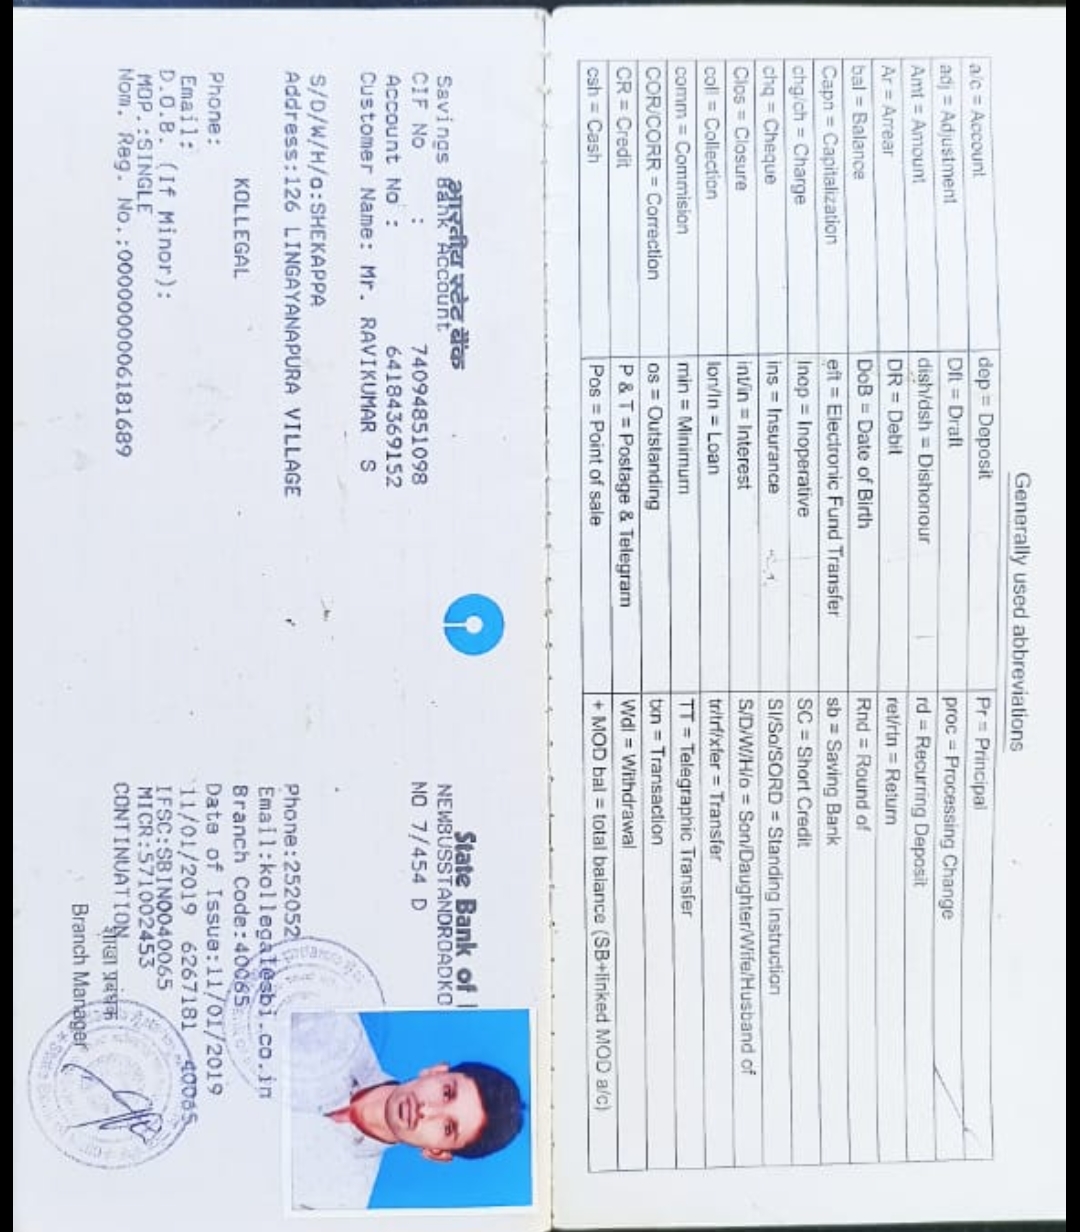 Generally used abbreviations
a/c = Account dep = Deposit Pr = Principal
adj = Adjustment Dft = Draft proc = Processing Change
Amt = Amount dish/dsh = Dishonour rd = Recurring Deposit
Ar = Arrear DR = Debit ret/rtn = Return
bal = Balance DoB = Date of Birth Rnd = Round of
Capn = Capitalization eft = Electronic Fund Transfer sb = Saving Bank
chg/ch = Charge Inop = Inoperative SC = Short Credit
chq = Cheque ins = Insurance SI/So/SORD = Standing Instruction
Clos = Closure int/in = Interest S/D/W/H/o = Son/Daughter/Wife/Husband of
coll = Collection lon/ln = Loan tr/trf/xfer = Transfer
comm = Commision min = Minimum TT = Telegraphic Transfer
COR/CORR = Correction os = Outstanding txn = Transaction
CR = Credit P & T = Postage & Telegram Wdl = Withdrawal
csh = Cash Pos = Point of sale + MOD bal = total balance (SB+linked MOD a/c)
भारतीय स्टेट बैंक State Bank of
Savings Bank Account NEWBUSSTANDROADKO
CIF No : 74094851098 NO 7/454 D
Account No : 64184369152
Customer Name: Mr. RAVIKUMAR S
S/D/W/H/o:SHEKAPPA
Address:126 LINGAYANAPURA VILLAGE Phone:252052
Email:kollegalesbi.co.in
KOLLEGAL Branch Code:40065
Phone: Date of Issue:11/01/2019
Email: 11/01/2019 6267181 40065
D.O.B. (If Minor): IFSC:SBIN0040065
MOP.:SINGLE MICR:571002453
Nom. Reg. No.:0000000006181689 CONTINUATION
शाखा प्रबंधक
Branch Manager